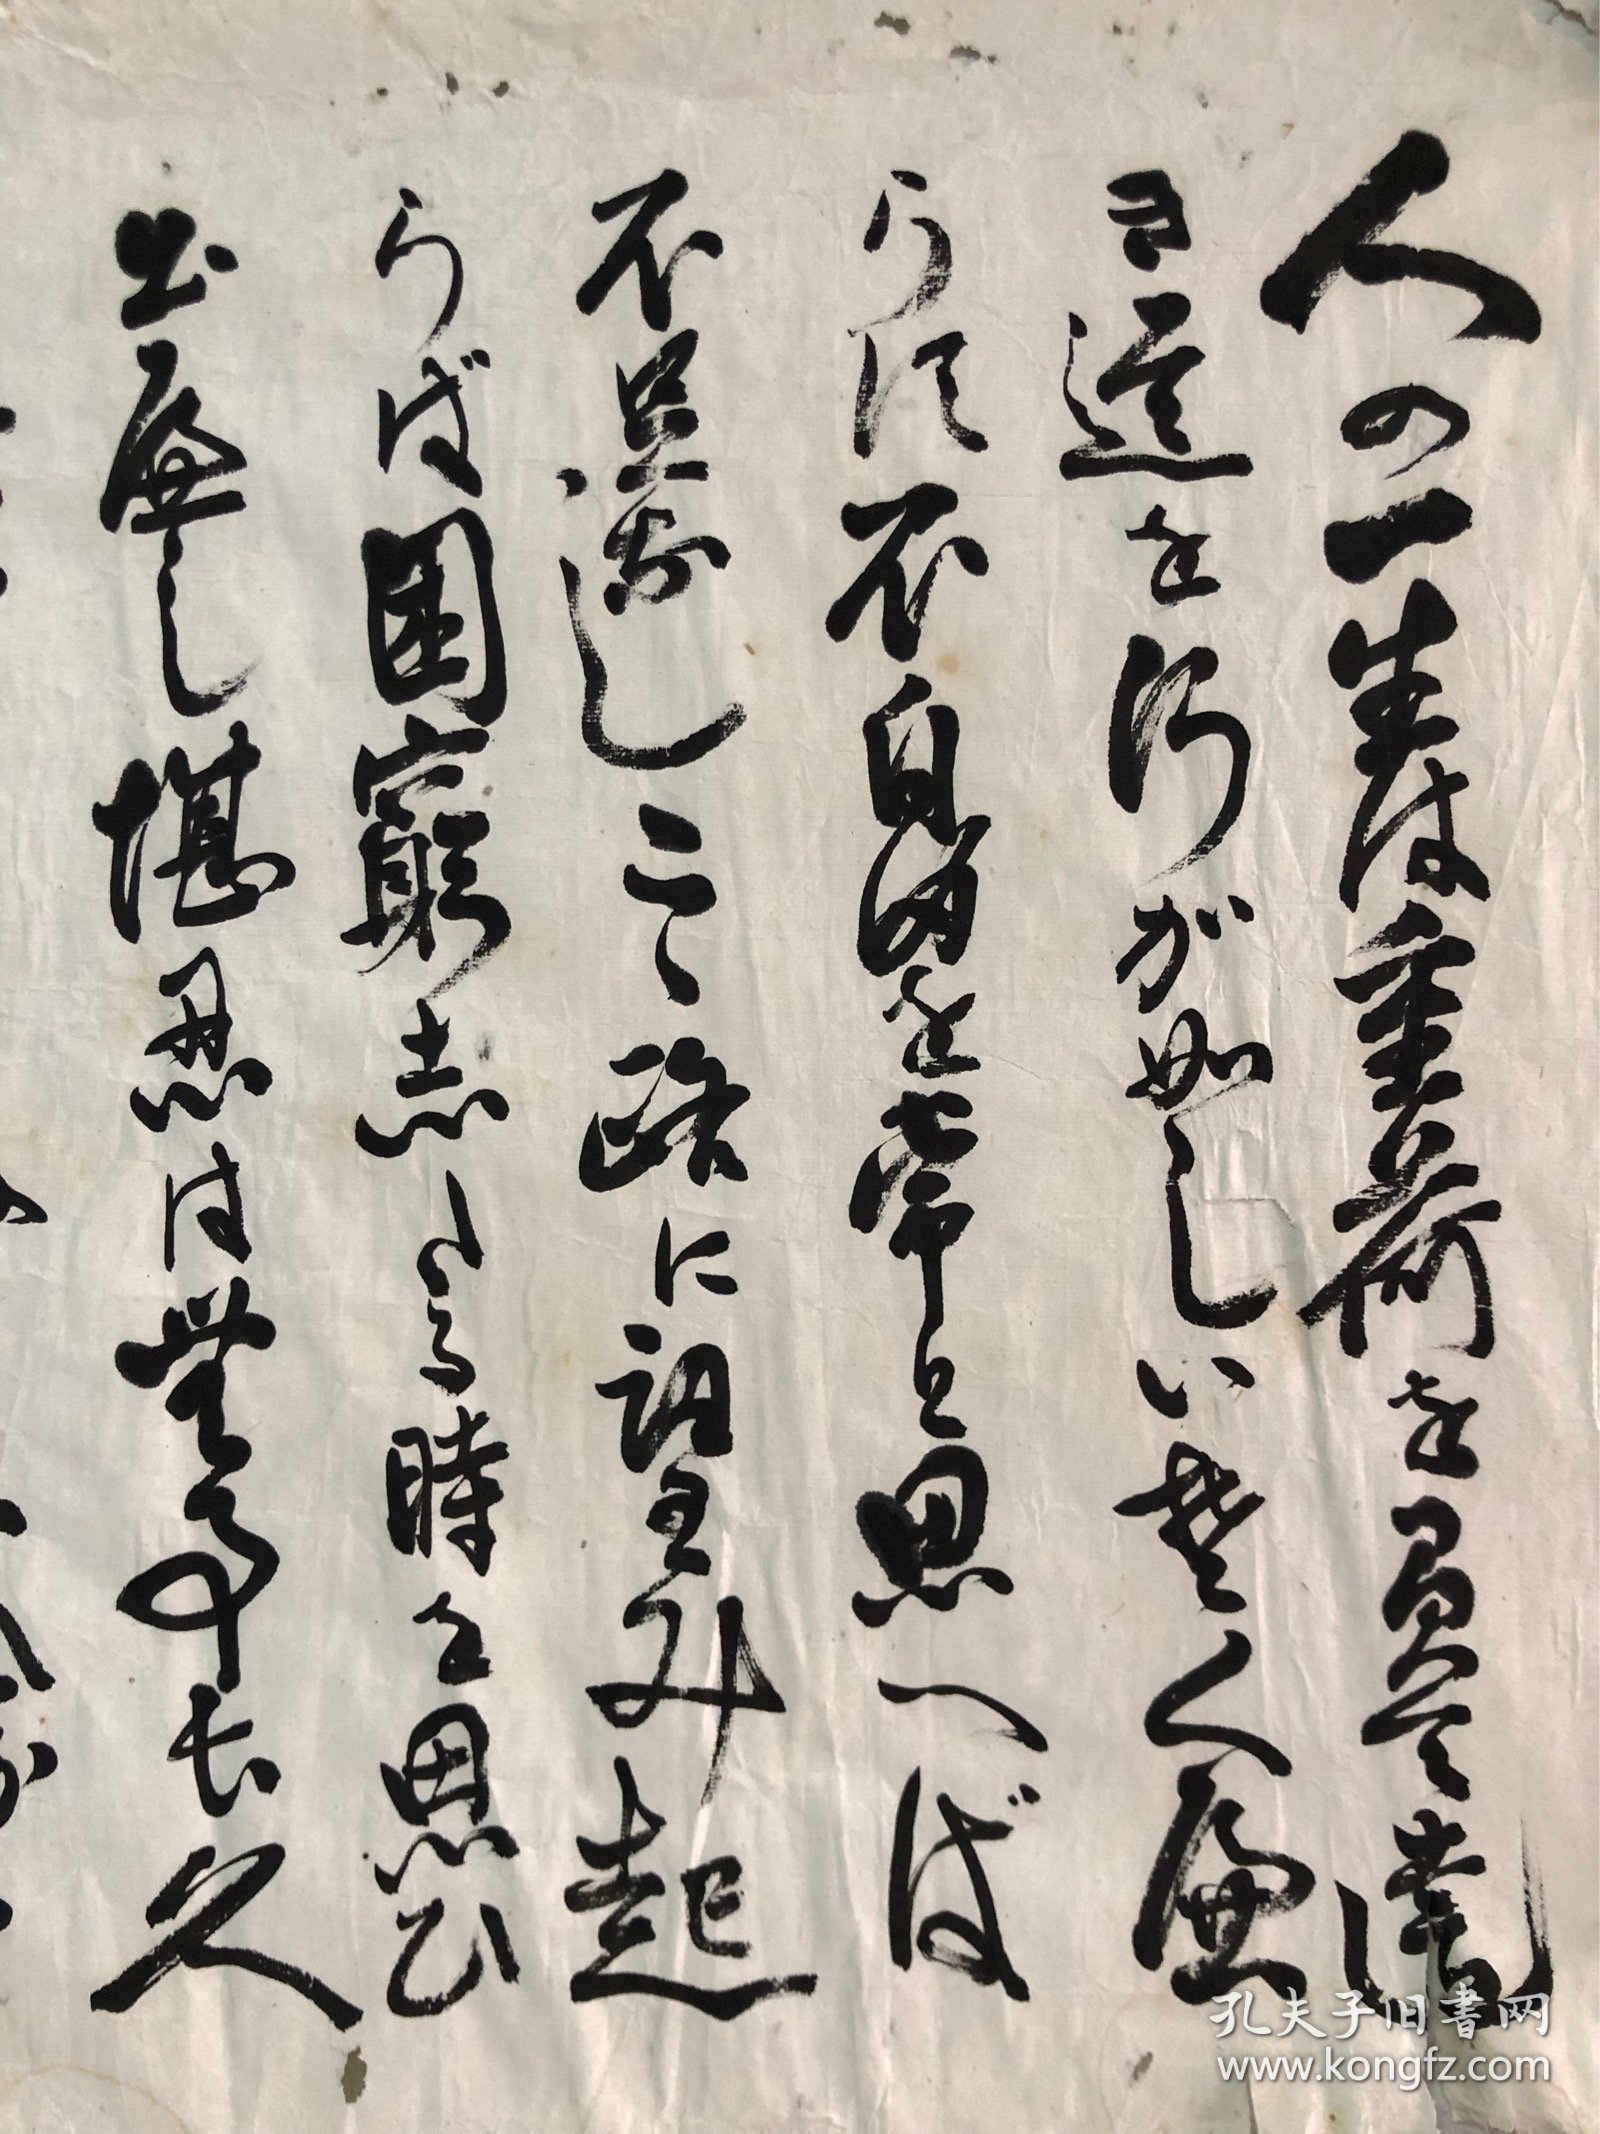 人の一生は重荷を負て遠
き道を行が如しいそくべ
からず不自由を常と思へば
不足なしこゝ路に望み起
らば困窮志たる時を思ひ
出べし堪忍は無事長久
孔夫子旧书网
www.kongfz.com